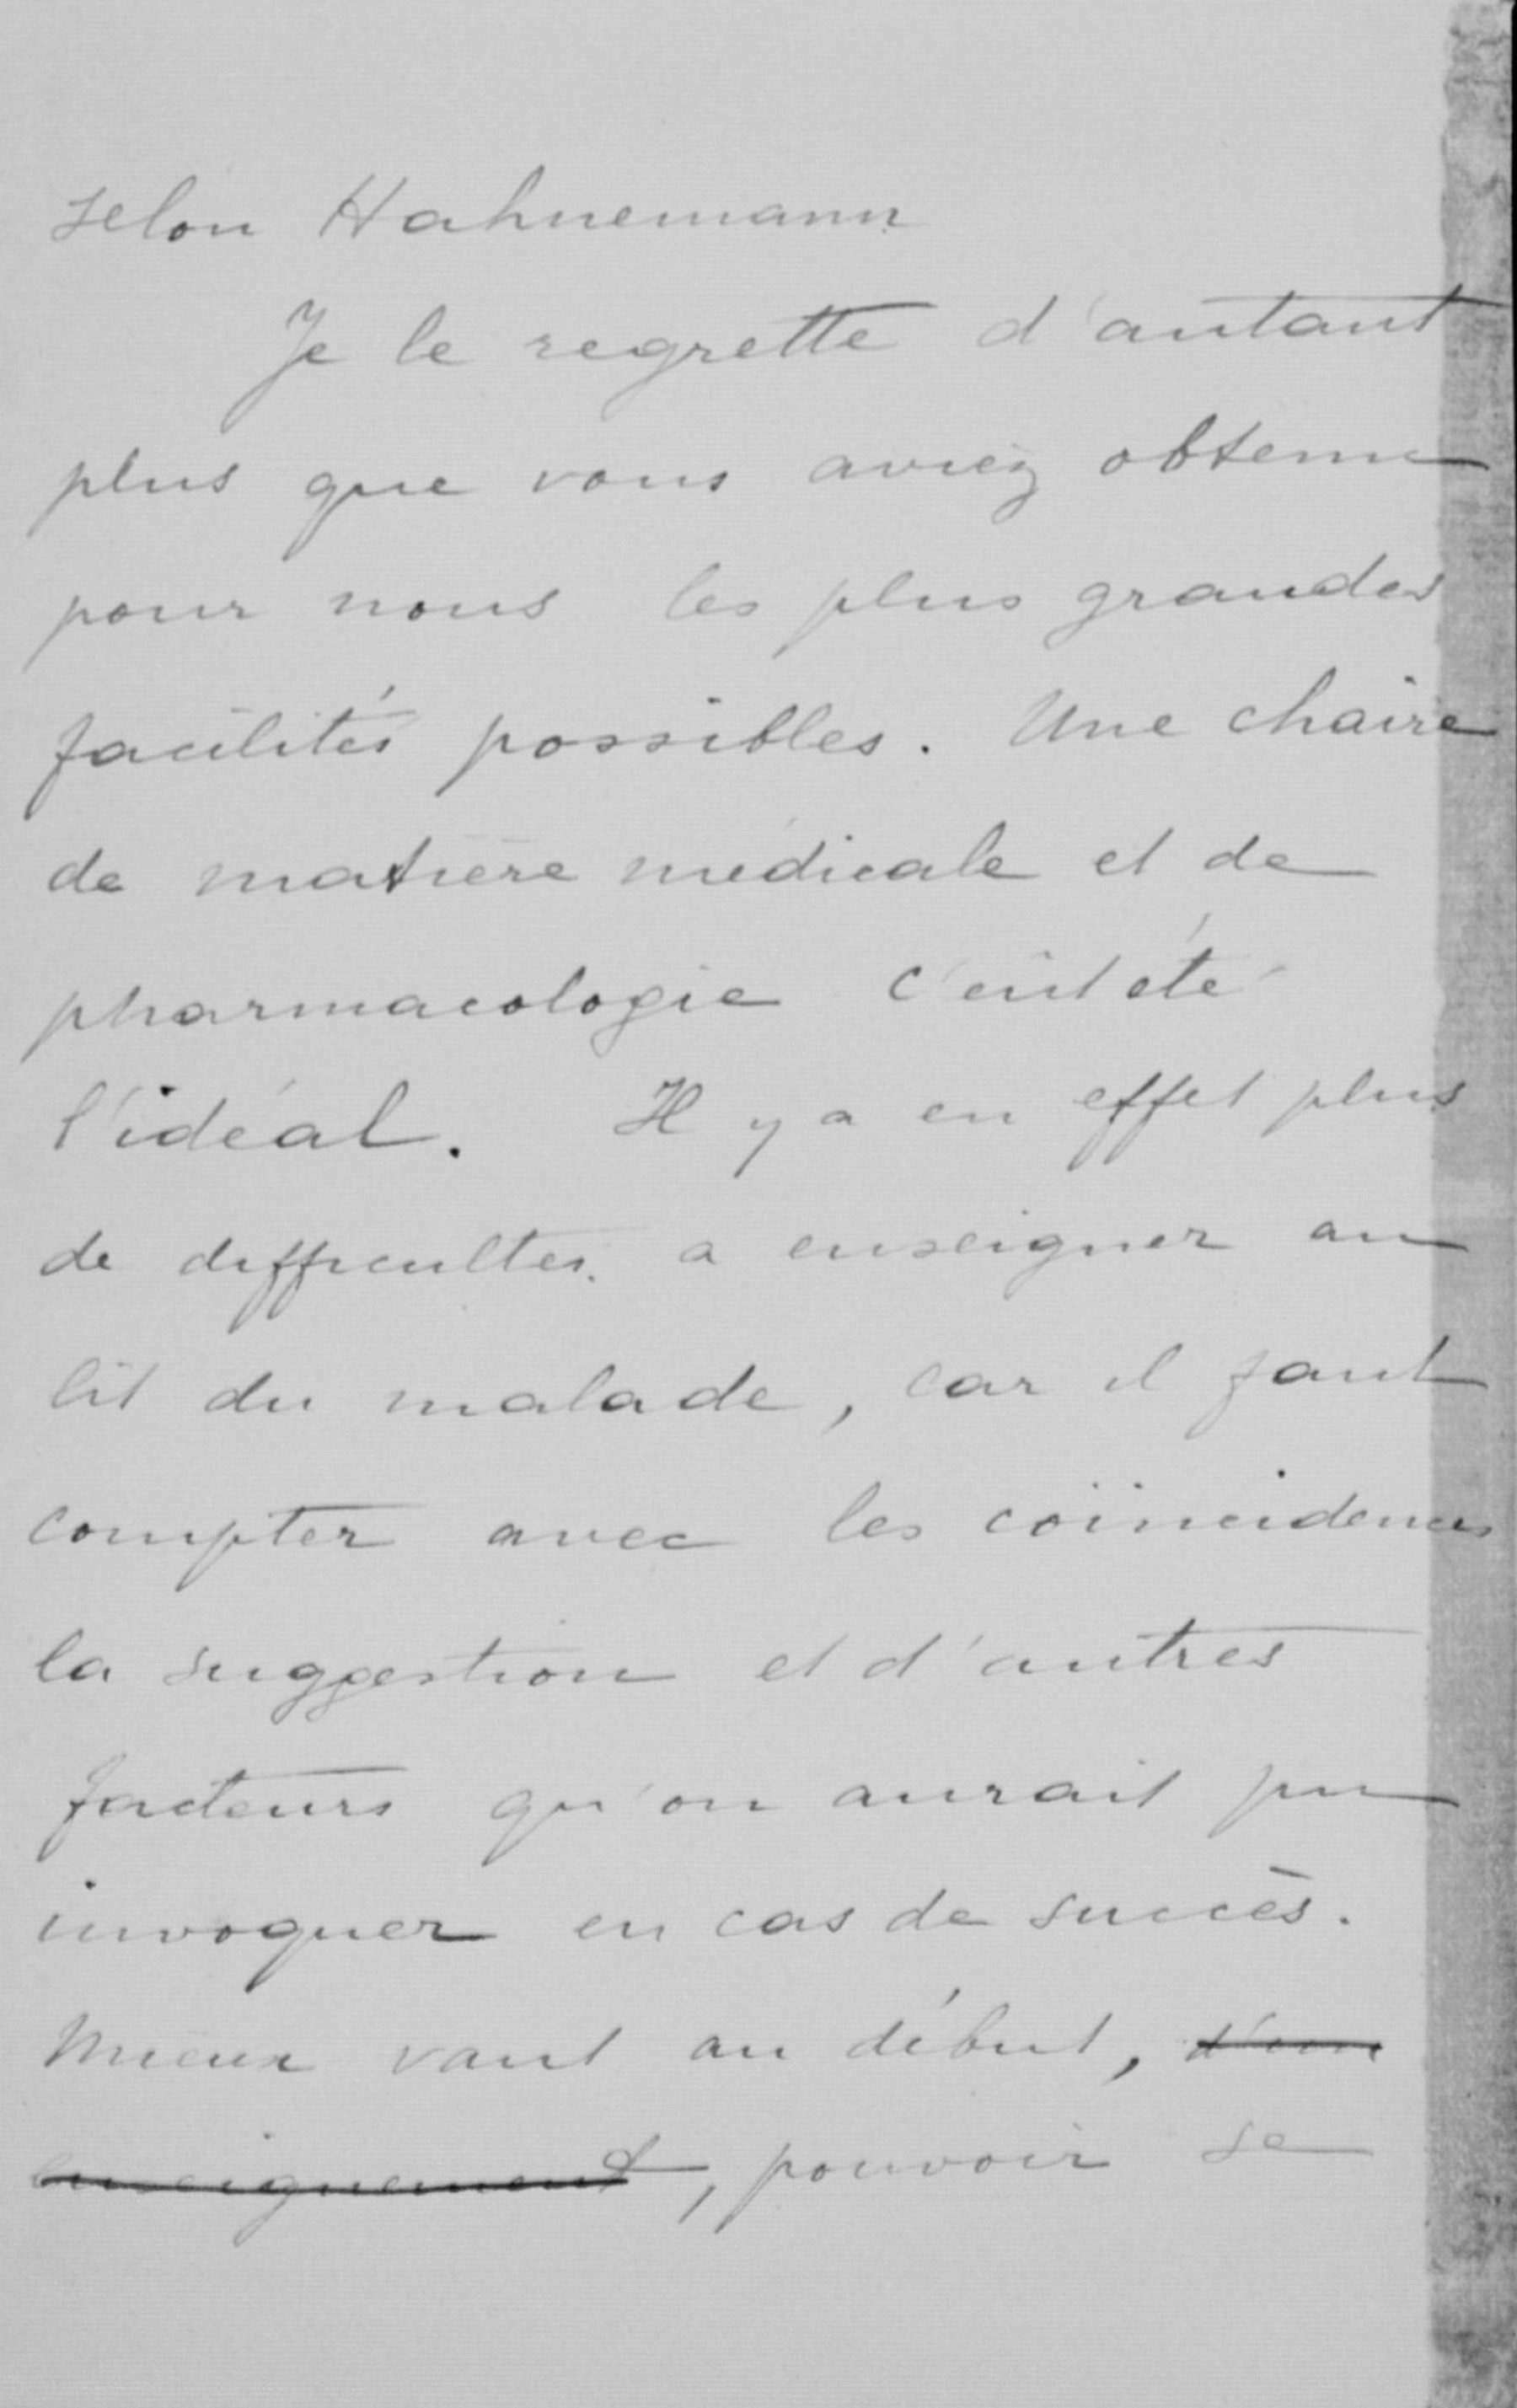 selon Hahnemann
Je le regrette d'autant
plus que vous aviez obtenu
pour nous les plus grandes
facilités possibles. Une chaire
de matière médicale et de
pharmacologie c'eut été
l'idéal. Il y a en effet plus
de difficultés a enseigner au
lit du malade, car il faut
compter avec les coïncidences
la suggestion et d'autres
facteurs qu'on aurait pu
invoquer en cas de succès.
Mieux vaut au début,
enseignement, pouvoir se